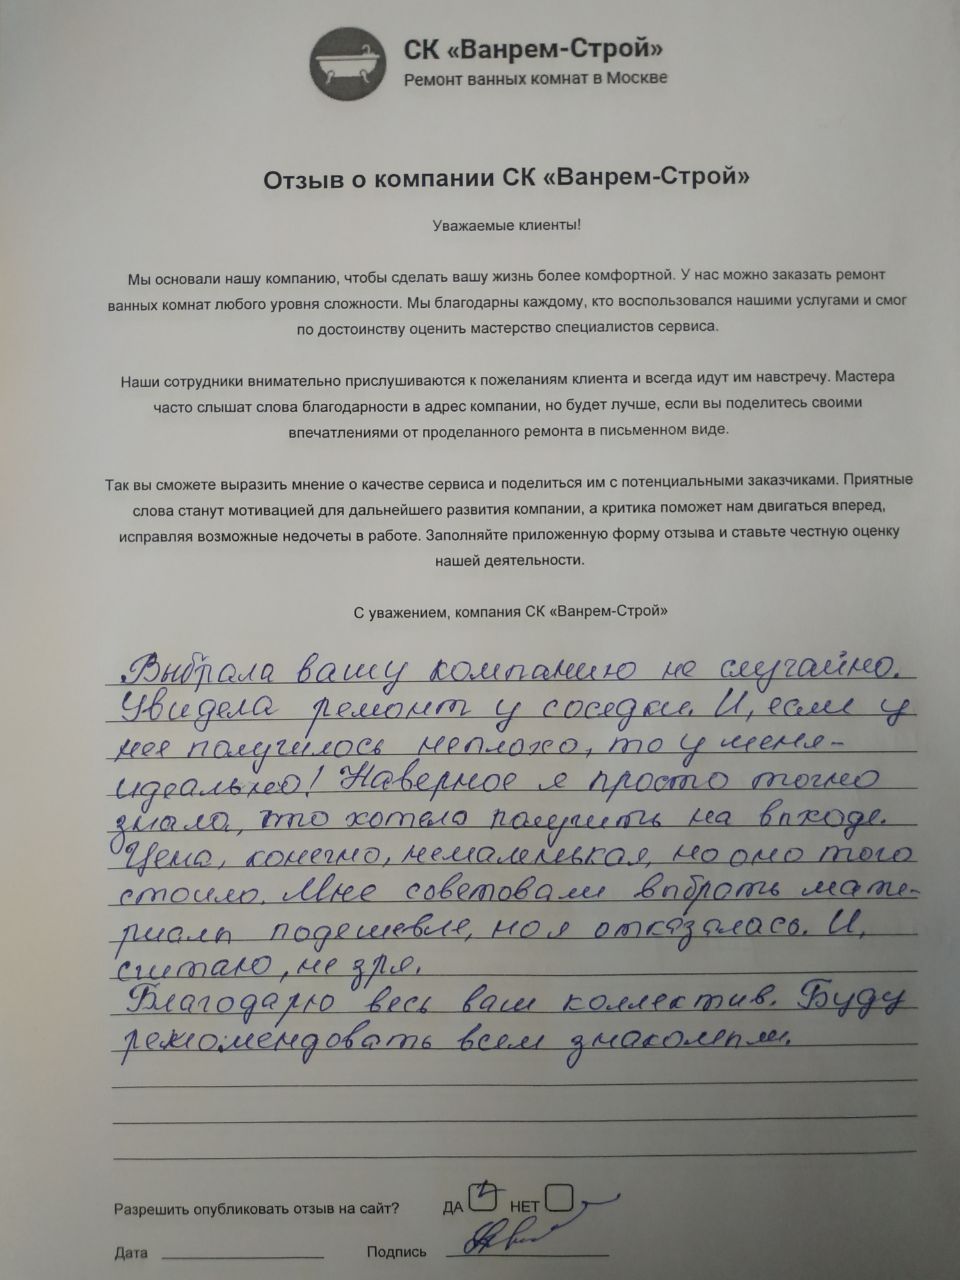 СК «Ванрем-Строй»
Ремонт ванных комнат в Москве
Отзыв о компании СК «Ванрем-Строй»
Уважаемые клиенты!
Мы основали нашу компанию, чтобы сделать вашу жизнь более комфортной. У нас можно заказать ремонт
ванных комнат любого уровня сложности. Мы благодарны каждому, кто воспользовался нашими услугами и смог
по достоинству оценить мастерство специалистов сервиса.
Наши сотрудники внимательно прислушиваются к пожеланиям клиента и всегда идут им навстречу. Мастера
часто слышат слова благодарности в адрес компании, но будет лучше, если вы поделитесь своими
впечатлениями от проделанного ремонта в письменном виде.
Так вы сможете выразить мнение о качестве сервиса и поделиться им с потенциальными заказчиками. Приятные
слова станут мотивацией для дальнейшего развития компании, а критика поможет нам двигаться вперед,
исправляя возможные недочеты в работе. Заполняйте приложенную форму отзыва и ставьте честную оценку
нашей деятельности.
С уважением, компания СК «Ванрем-Строй»
Выбрала вашу компанию не случайно.
Увидела ремонт у соседки. И, если у
нее получилось неплохо, то у меня -
идеально! Наверное я просто точно
знала, что хотела получить на выходе.
Цена, конечно, немаленькая, но оно того
стоило. Мне советовали выбрать мате-
риалы подешевле, но я отказалась. И,
считаю, не зря.
Благодарю весь ваш коллектив. Буду
рекомендовать всем знакомым.
Разрешить опубликовать отзыв на сайт? ДА НЕТ
Дата Подпись